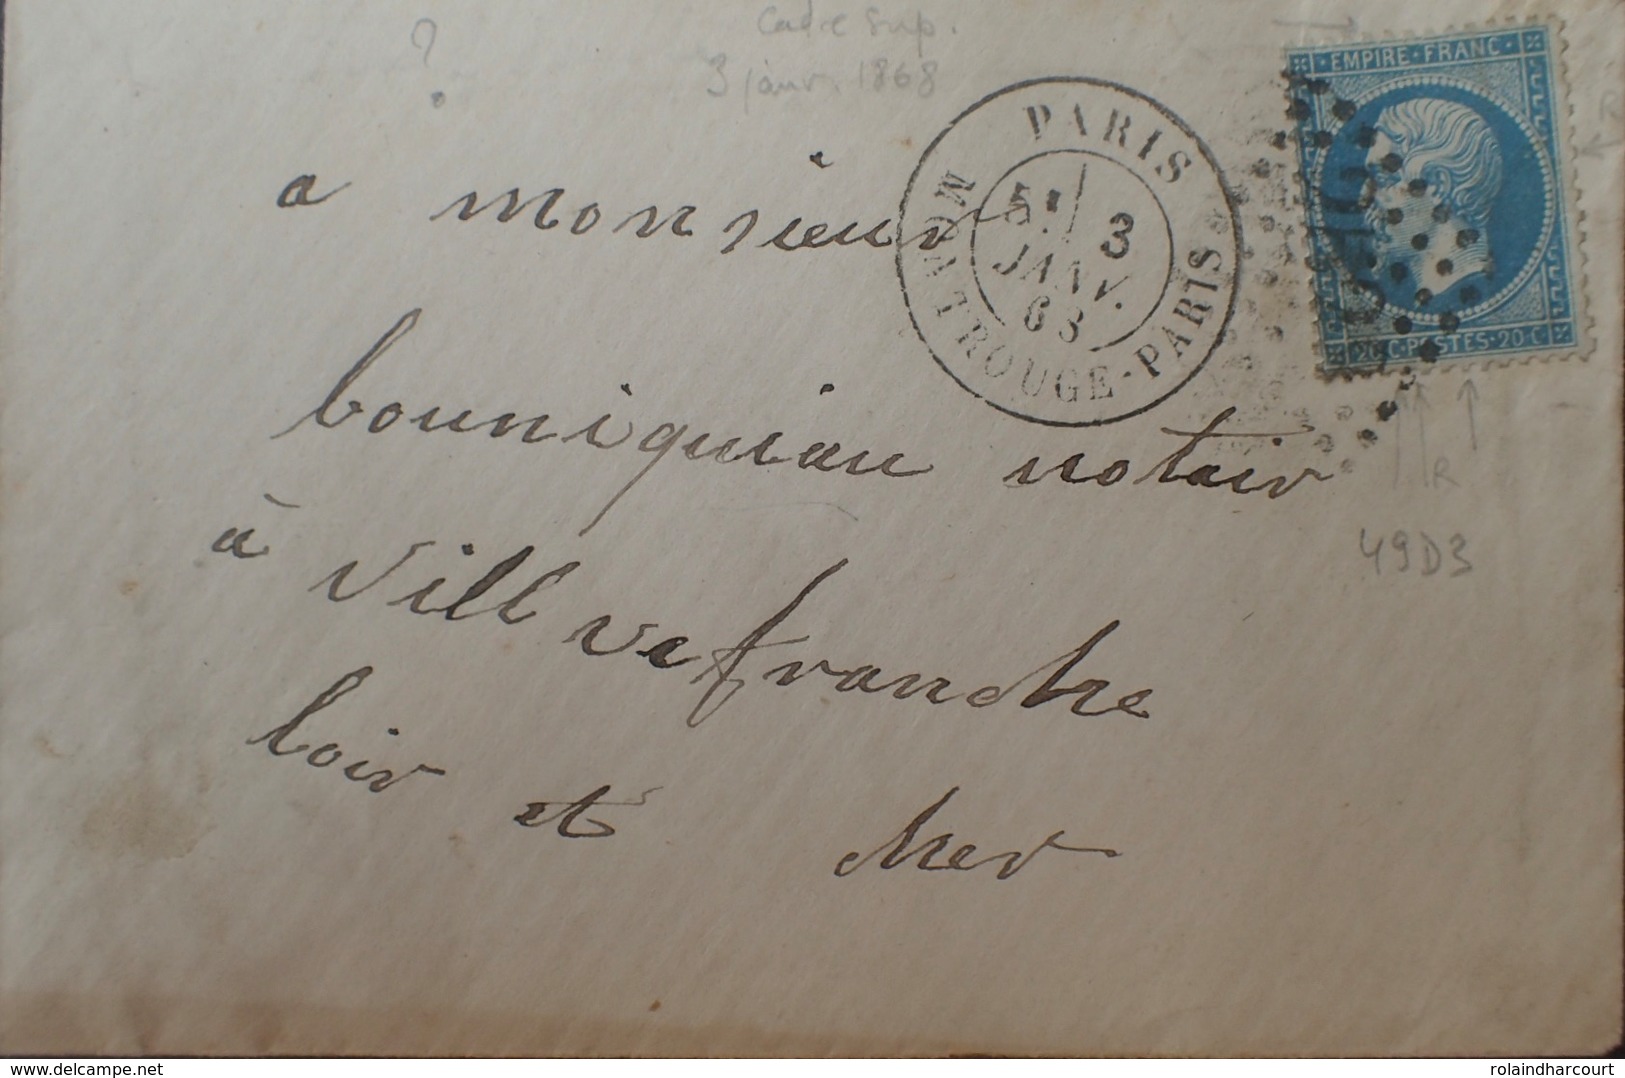 Cadre Sup.
?
3 janv. 1868
EMPIRE·FRANC·
PARIS
MONTROUGE-PARIS
5E 3
JANV.
68
R
20 C·POSTES·20 C
a monsieur
bouniquiau notair
R
49D3
à Villvefranche
loir et Cher
delcampe.net
rolaindharcourt